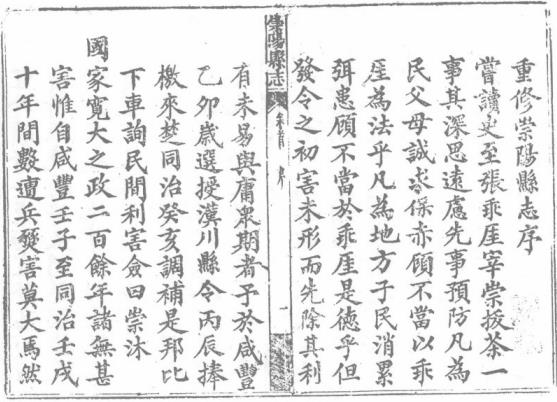 重修崇陽縣志序
嘗讀史至張乖厓宰崇拔茶一
事其深思遠慮先事預防凡為
民父母誠求保赤顧不當以乖
厓為法乎凡為地方子民消累
弭患顧不當於乖厓是德乎但
發令之初害未形而先除其利
崇陽縣志 卷首 序 一
有未易與庸眾期者予於咸豐
乙卯歲選授漢川縣令丙辰捧
檄來楚同治癸亥調補是邦比
下車詢民間利害僉曰崇沐
國家寬大之政二百餘年諸無甚
害惟自咸豐壬子至同治壬戌
十年間數遭兵燹害莫大焉然